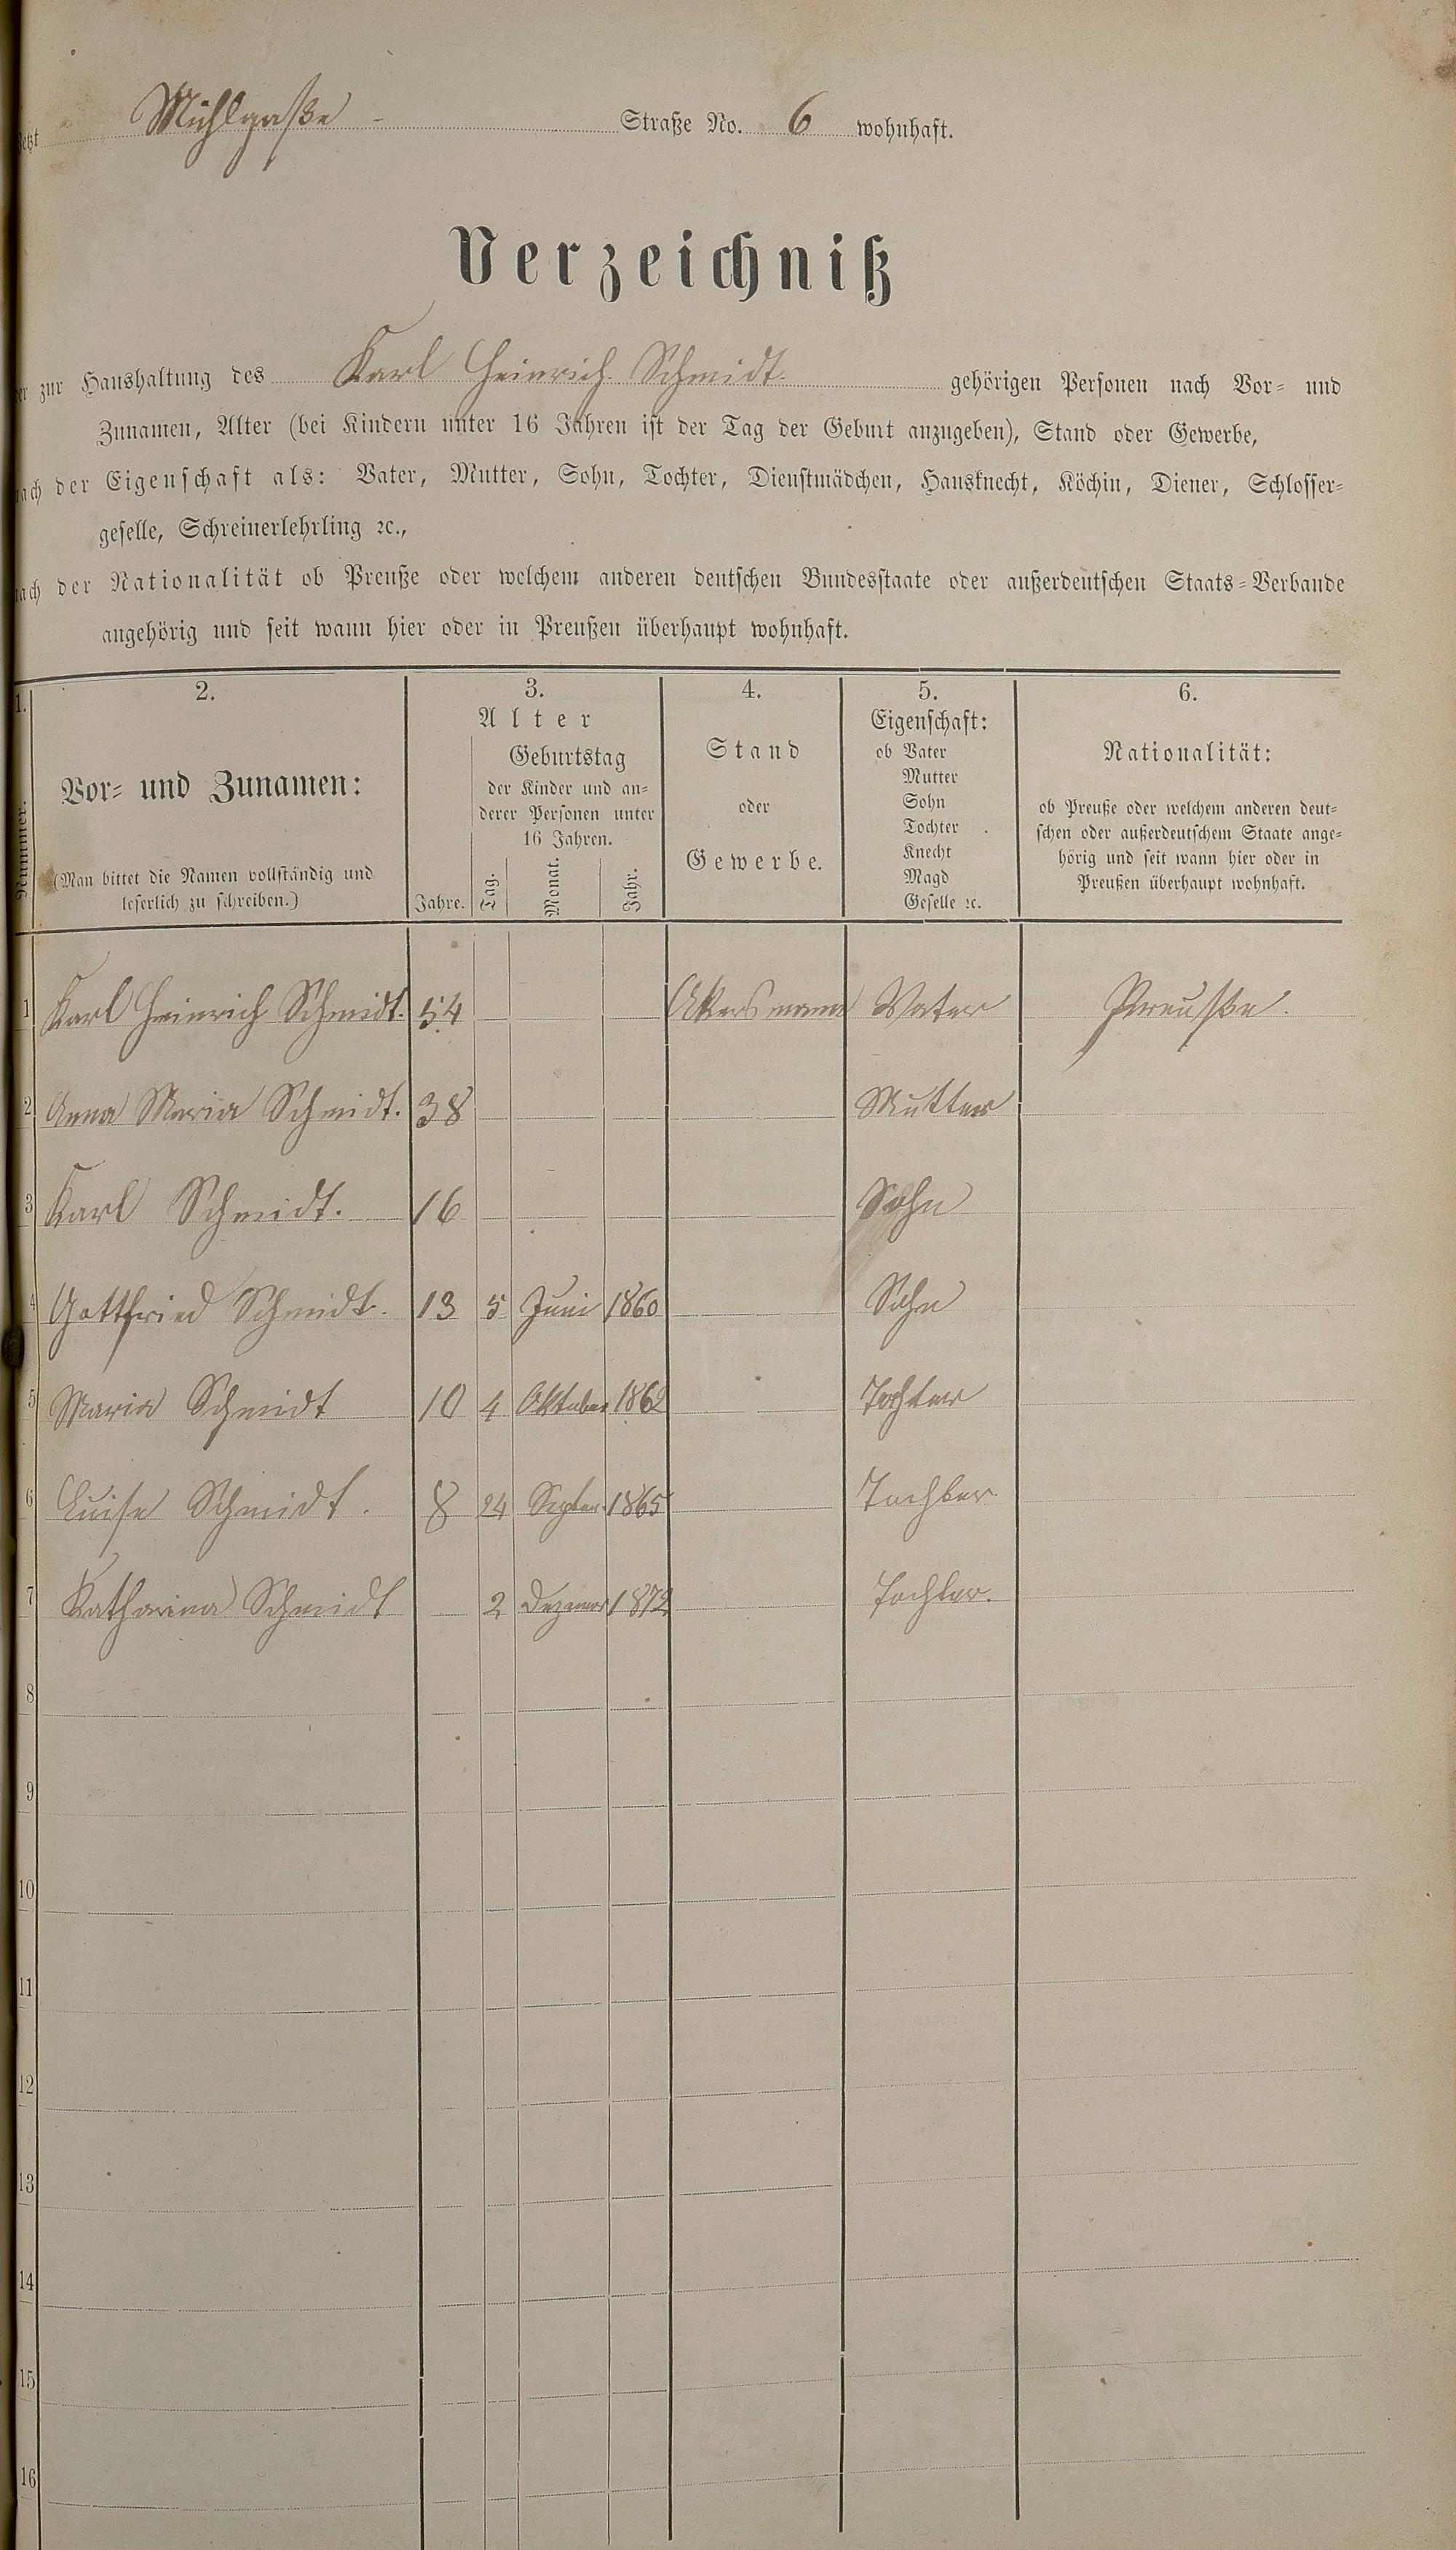 Mühlgaße - Straße No. 6 wohnhaft.
Verzeichniß
zur Haushaltung des Karl Heinrich Schmidt. gehörigen Personen nach Vor- und
Zunamen, Alter (bei Kindern unter 16 Jahren ist der Tag der Geburt anzugeben), Stand oder Gewerbe,
nach der Eigenschaft als: Vater, Mutter, Sohn, Tochter, Dienstmädchen, Hausknecht, Köchin, Diener, Schlosser-
geselle, Schreinerlehrling ꝛc.,
nach der Nationalität ob Preuße oder welchem anderen deutschen Bundesstaate oder außerdeutschen Staats-Verbande
angehörig und seit wann hier oder in Preußen überhaupt wohnhaft.
1.
Nummer.
2.
Vor- und Zunamen:
(Man bittet die Namen vollständig und
leserlich zu schreiben.)
3.
Alter
Jahre.
Geburtstag
der Kinder und an-
derer Personen unter
16 Jahren.
Tag.
Monat.
Jahr.
4.
Stand
oder
Gewerbe.
5.
Eigenschaft:
ob Vater
Mutter
Sohn
Tochter
Knecht
Magd
Geselle ꝛc.
6.
Nationalität:
ob Preuße oder welchem anderen deut-
schen oder außerdeutschem Staate ange-
hörig und seit wann hier oder in
Preußen überhaupt wohnhaft.
1 Karl Heinrich Schmidt. 54 Akersmann Vater Preuße.
2 Anna Maria Schmidt. 38 Mutter
3 Karl Schmidt. 16 Sohn
4 Gottfried Schmidt. 13 5 Juni 1860 Sohn
5 Maria Schmidt 10 4 Oktober 1862 Tochter
6 Luise Schmidt. 8 24 1865 Tochter
7 Katharina Schmidt 2 1872 Tochter.
8
9
10
11
12
13
14
15
16